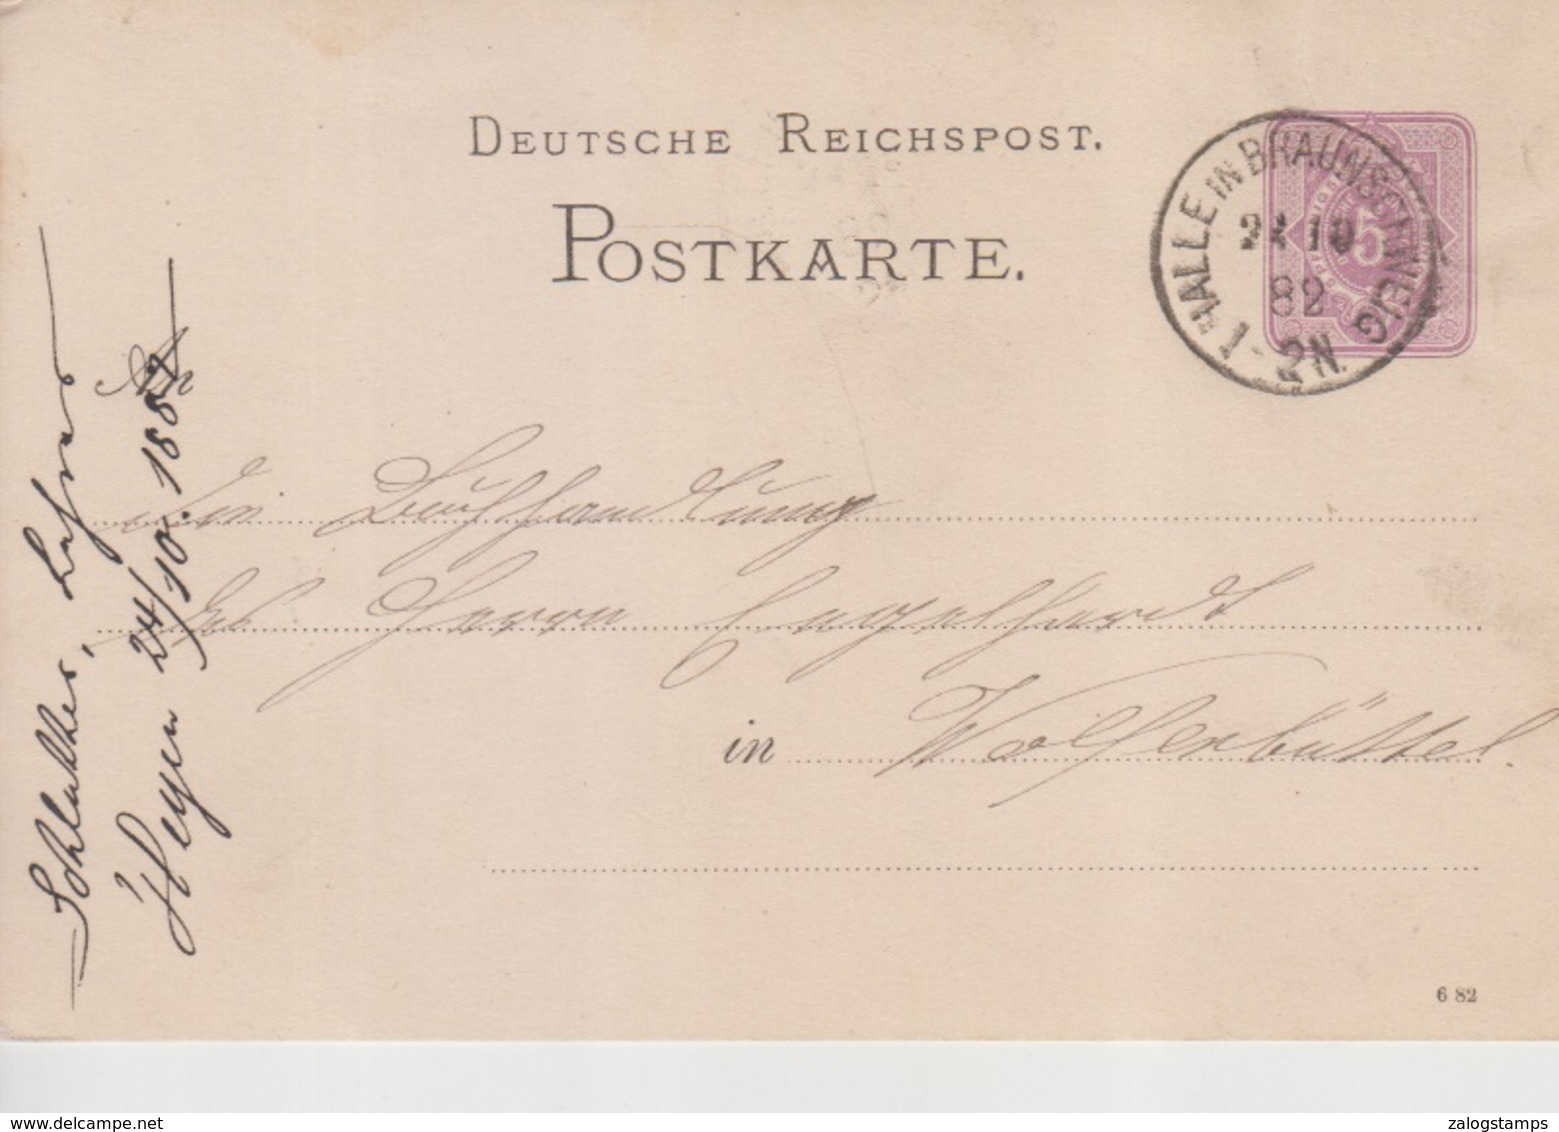 DEUTSCHE REICHSPOST.
POSTKARTE.
HALLE IN BRAUNSCHWEIG
10
82
1-2N.
5
An
Buchhandlung
des Herrn Engelhardt
in Wolfenbüttel.
Schlakker, Lehrer
Heyen 24/10. 1882
6 82
www.delcampe.net
zalogstamps